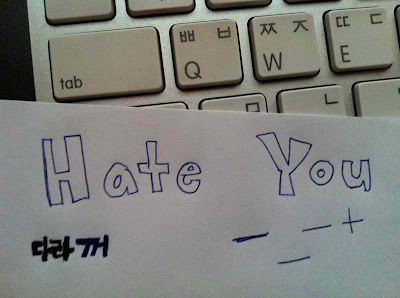 ㅃ ㅂ ㅉ ㅈ ㄸ ㄷ
tab Q W E
ㅁ ㄴ
Hate You
다라꺼 -_-+